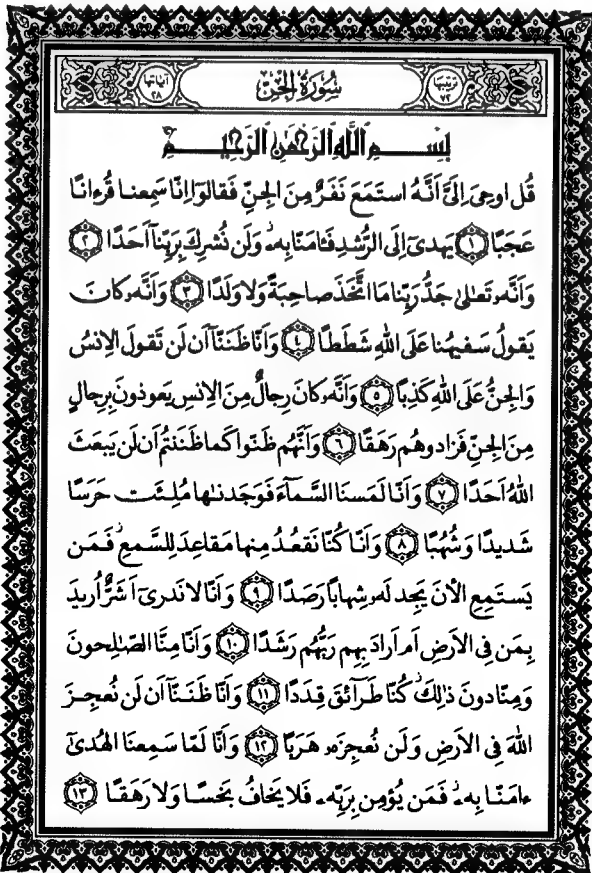 ترتيبها ٧٢
سُورَةُ الجِنّ
آياتها ٢٨
بِسْمِ اللَّهِ الرَّحْمَٰنِ الرَّحِيمِ
قُل اوحِىَ اِلَىَّ اَنَّهُ استَمَعَ نَفَرٌ مِنَ الجِنِّ فَقالوا اِنّا سَمِعنا قُرءانًا
عَجَبًا ﴿١﴾ يَهدى اِلَى الرُّشدِ فَـٔامَنّا بِهِ ۖ وَلَن نُشرِكَ بِرَبِّنا اَحَدًا ﴿٢﴾
وَاَنَّهُ تَعٰلىٰ جَدُّ رَبِّنا مَا اتَّخَذَ صاحِبَةً وَلا وَلَدًا ﴿٣﴾ وَاَنَّهُ كانَ
يَقولُ سَفيهُنا عَلَى اللهِ شَطَطًا ﴿٤﴾ وَاَنّا ظَنَنّآ اَن لَن تَقولَ الاِنسُ
وَالجِنُّ عَلَى اللهِ كَذِبًا ﴿٥﴾ وَاَنَّهُ كانَ رِجالٌ مِنَ الاِنسِ يَعوذونَ بِرِجالٍ
مِنَ الجِنِّ فَزادوهُم رَهَقًا ﴿٦﴾ وَاَنَّهُم ظَنّوا كَما ظَنَنتُم اَن لَن يَبعَثَ
اللهُ اَحَدًا ﴿٧﴾ وَاَنّا لَمَسنَا السَّمآءَ فَوَجَدنٰها مُلِئَت حَرَسًا
شَديدًا وَشُهُبًا ﴿٨﴾ وَاَنّا كُنّا نَقعُدُ مِنها مَقاعِدَ لِلسَّمعِ ۖ فَمَن
يَستَمِعِ الاٰنَ يَجِد لَهُ شِهابًا رَصَدًا ﴿٩﴾ وَاَنّا لا نَدرىٓ اَشَرٌّ اُريدَ
بِمَن فِى الاَرضِ اَم اَرادَ بِهِم رَبُّهُم رَشَدًا ﴿١٠﴾ وَاَنّا مِنَّا الصّٰلِحونَ
وَمِنّا دونَ ذٰلِكَ ۖ كُنّا طَرآئِقَ قِدَدًا ﴿١١﴾ وَاَنّا ظَنَنّآ اَن لَن نُعجِزَ
اللهَ فِى الاَرضِ وَلَن نُعجِزَهُ هَرَبًا ﴿١٢﴾ وَاَنّا لَمّا سَمِعنَا الهُدىٰٓ
ءامَنّا بِهِ ۖ فَمَن يُؤمِن بِرَبِّهِ فَلا يَخافُ بَخسًا وَلا رَهَقًا ﴿١٣﴾